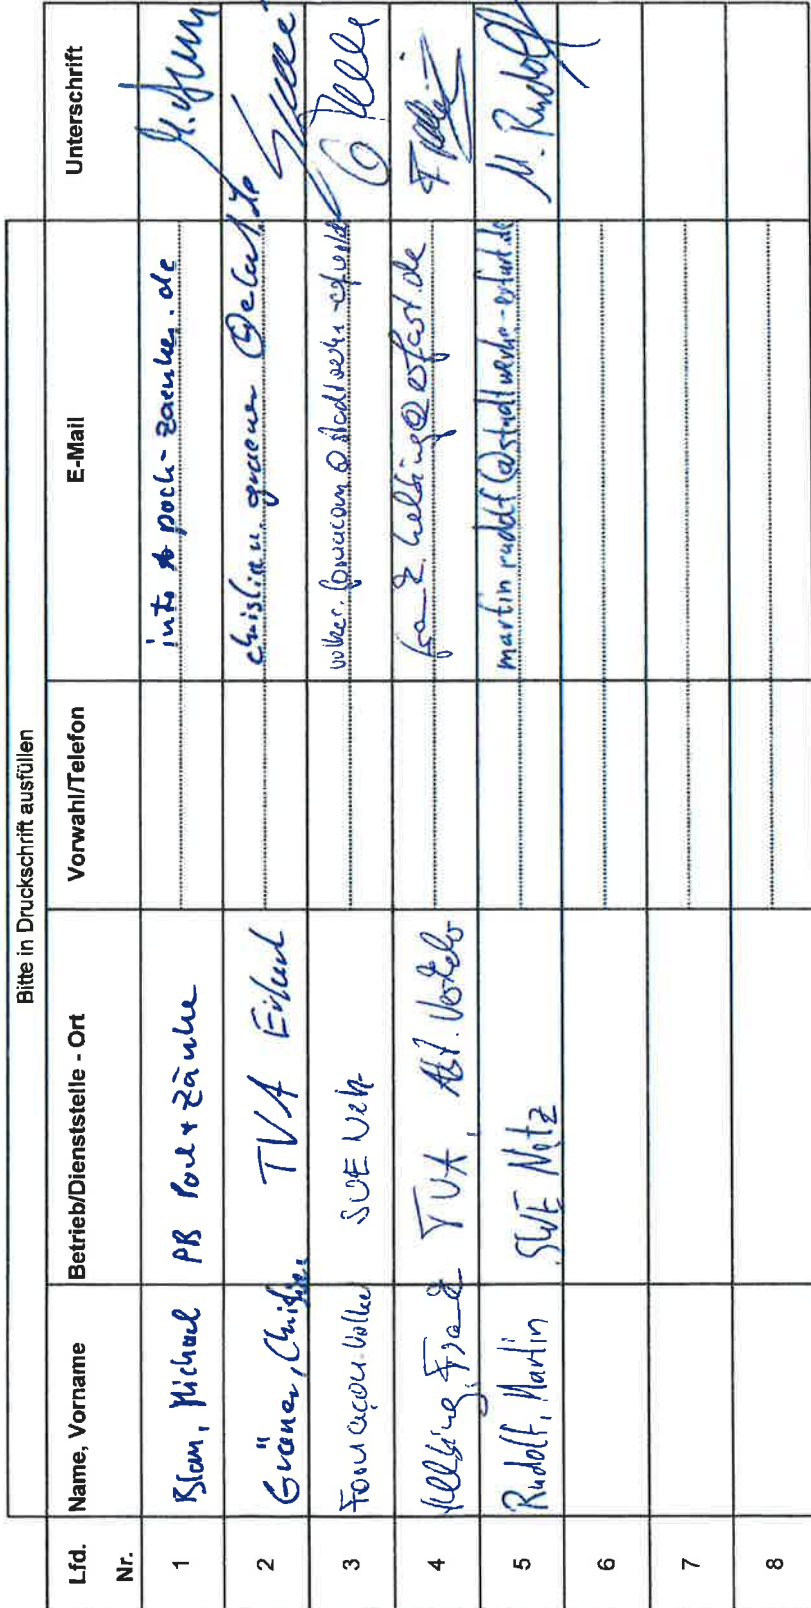 Bitte in Druckschrift ausfüllen
Lfd. Nr. Name, Vorname Betrieb/Dienststelle - Ort Vorwahl/Telefon E-Mail Unterschrift
1 Blau, Michael PB Poch + Zänker info @ poch-zaenker.de
2 Gräner, Christian TVA Erfurt christian.graener @
3 Volker SWE Netz volker.
4 Helbing, Frank TVA, Abt. Verkehr frank.helbing@erfurt.de
5 Rudolf, Martin SWE Netz martin.rudolf@stadtwerke-erfurt.de M. Rudolf
6
7
8